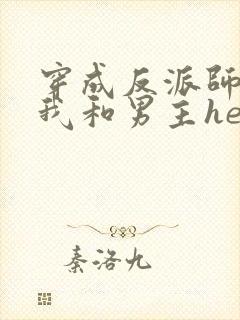 穿成反派師
我和男主he
秦洛九